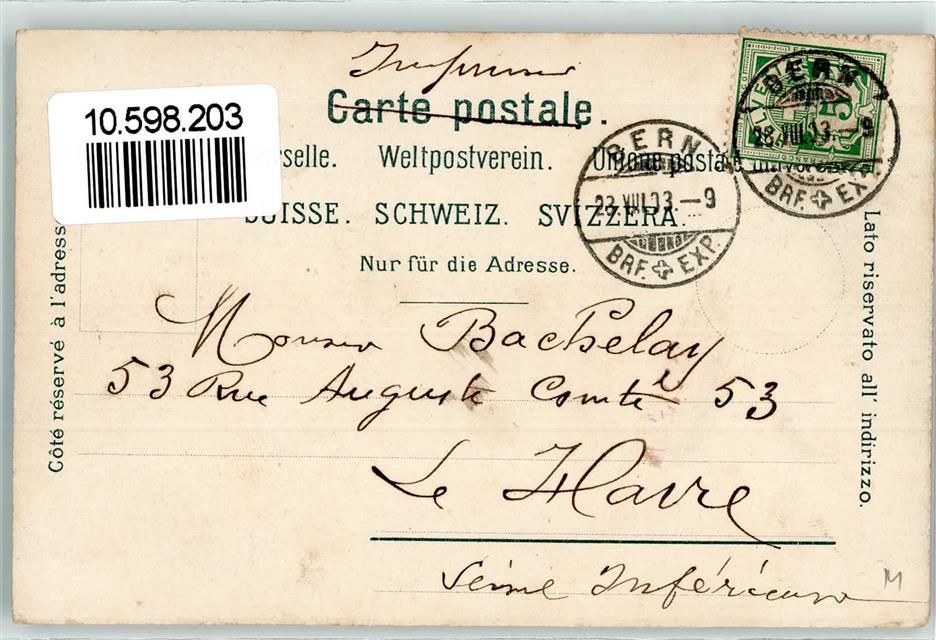 Imprimé
Carte postale.
10.598.203
Weltpostverein. Unione postale universale
SUISSE. SCHWEIZ. SVIZZERA.
Nur für die Adresse.
BERN
23.VIII.03.-9
BRF. EXP.
BERN
23.VIII.03.-9
BRF. EXP.
Côté réservé à l'adresse
Lato riservato all' indirizzo.
Monsieur Bachelay
53 Rue Auguste Comte 53
Le Havre
Seine Inférieure
M